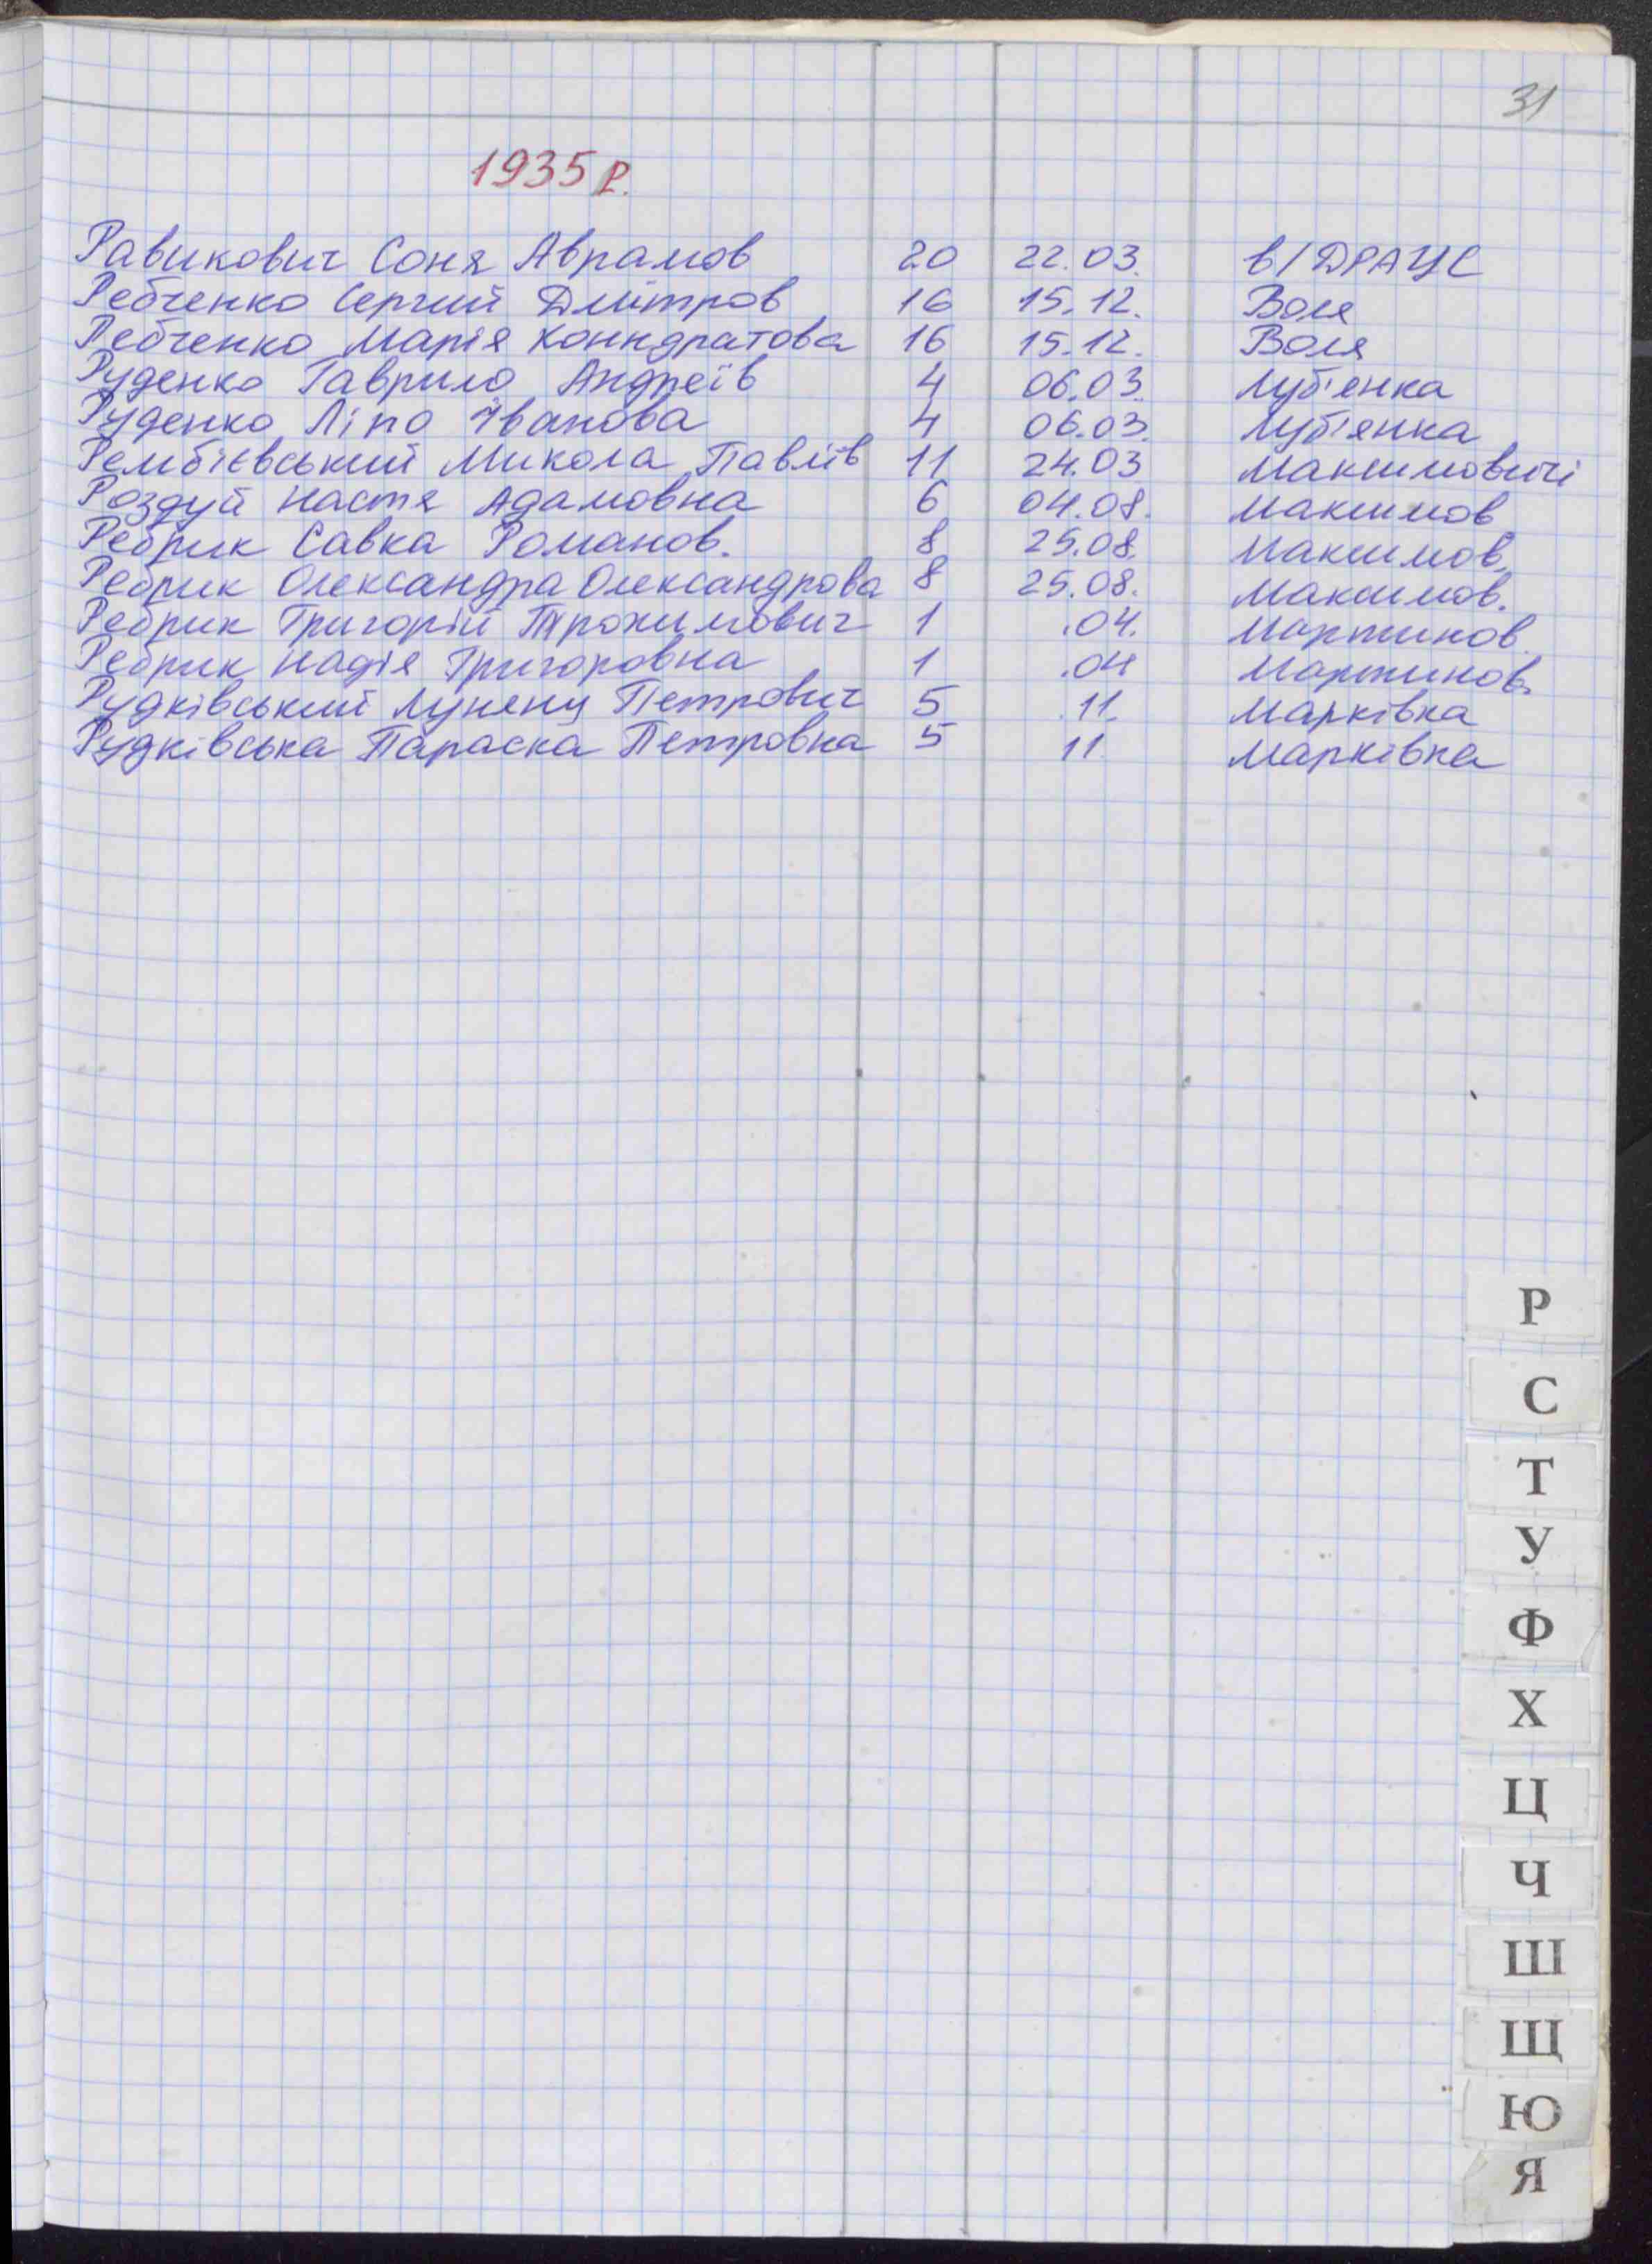 31
1935 р.
Равикович Соня Аврамов 20 22.03. в/ДРАЦС
Ребченко Сергий Дмітров 16 15.12. Воля
Ребченко Марія Конндратова 16 15.12. Воля
Руденко Гаврило Андреїв 4 06.03. Луб'енка
Руденко Ліпа Іванова 4 06.03. Луб'янка
Рембієвський Микола Павлів 11 24.03 Максимовичі
Роздуй Настя Адамовна 6 04.08. Максимов
Ребрик Савка Романов. 8 25.08. Максимов.
Ребрик Олександра Олександрова 8 25.08. Максимов.
Ребрик Григорій Трохимович 1 .04. Мартинов.
Ребрик Надія Григоровна 1 .04 Мартинов.
Рудківський Петрович 5 .11. Марківка
Рудківська Параска Петровна 5 11. Марківка
Р
С
Т
У
Ф
Х
Ц
Ч
Ш
Щ
Ю
Я